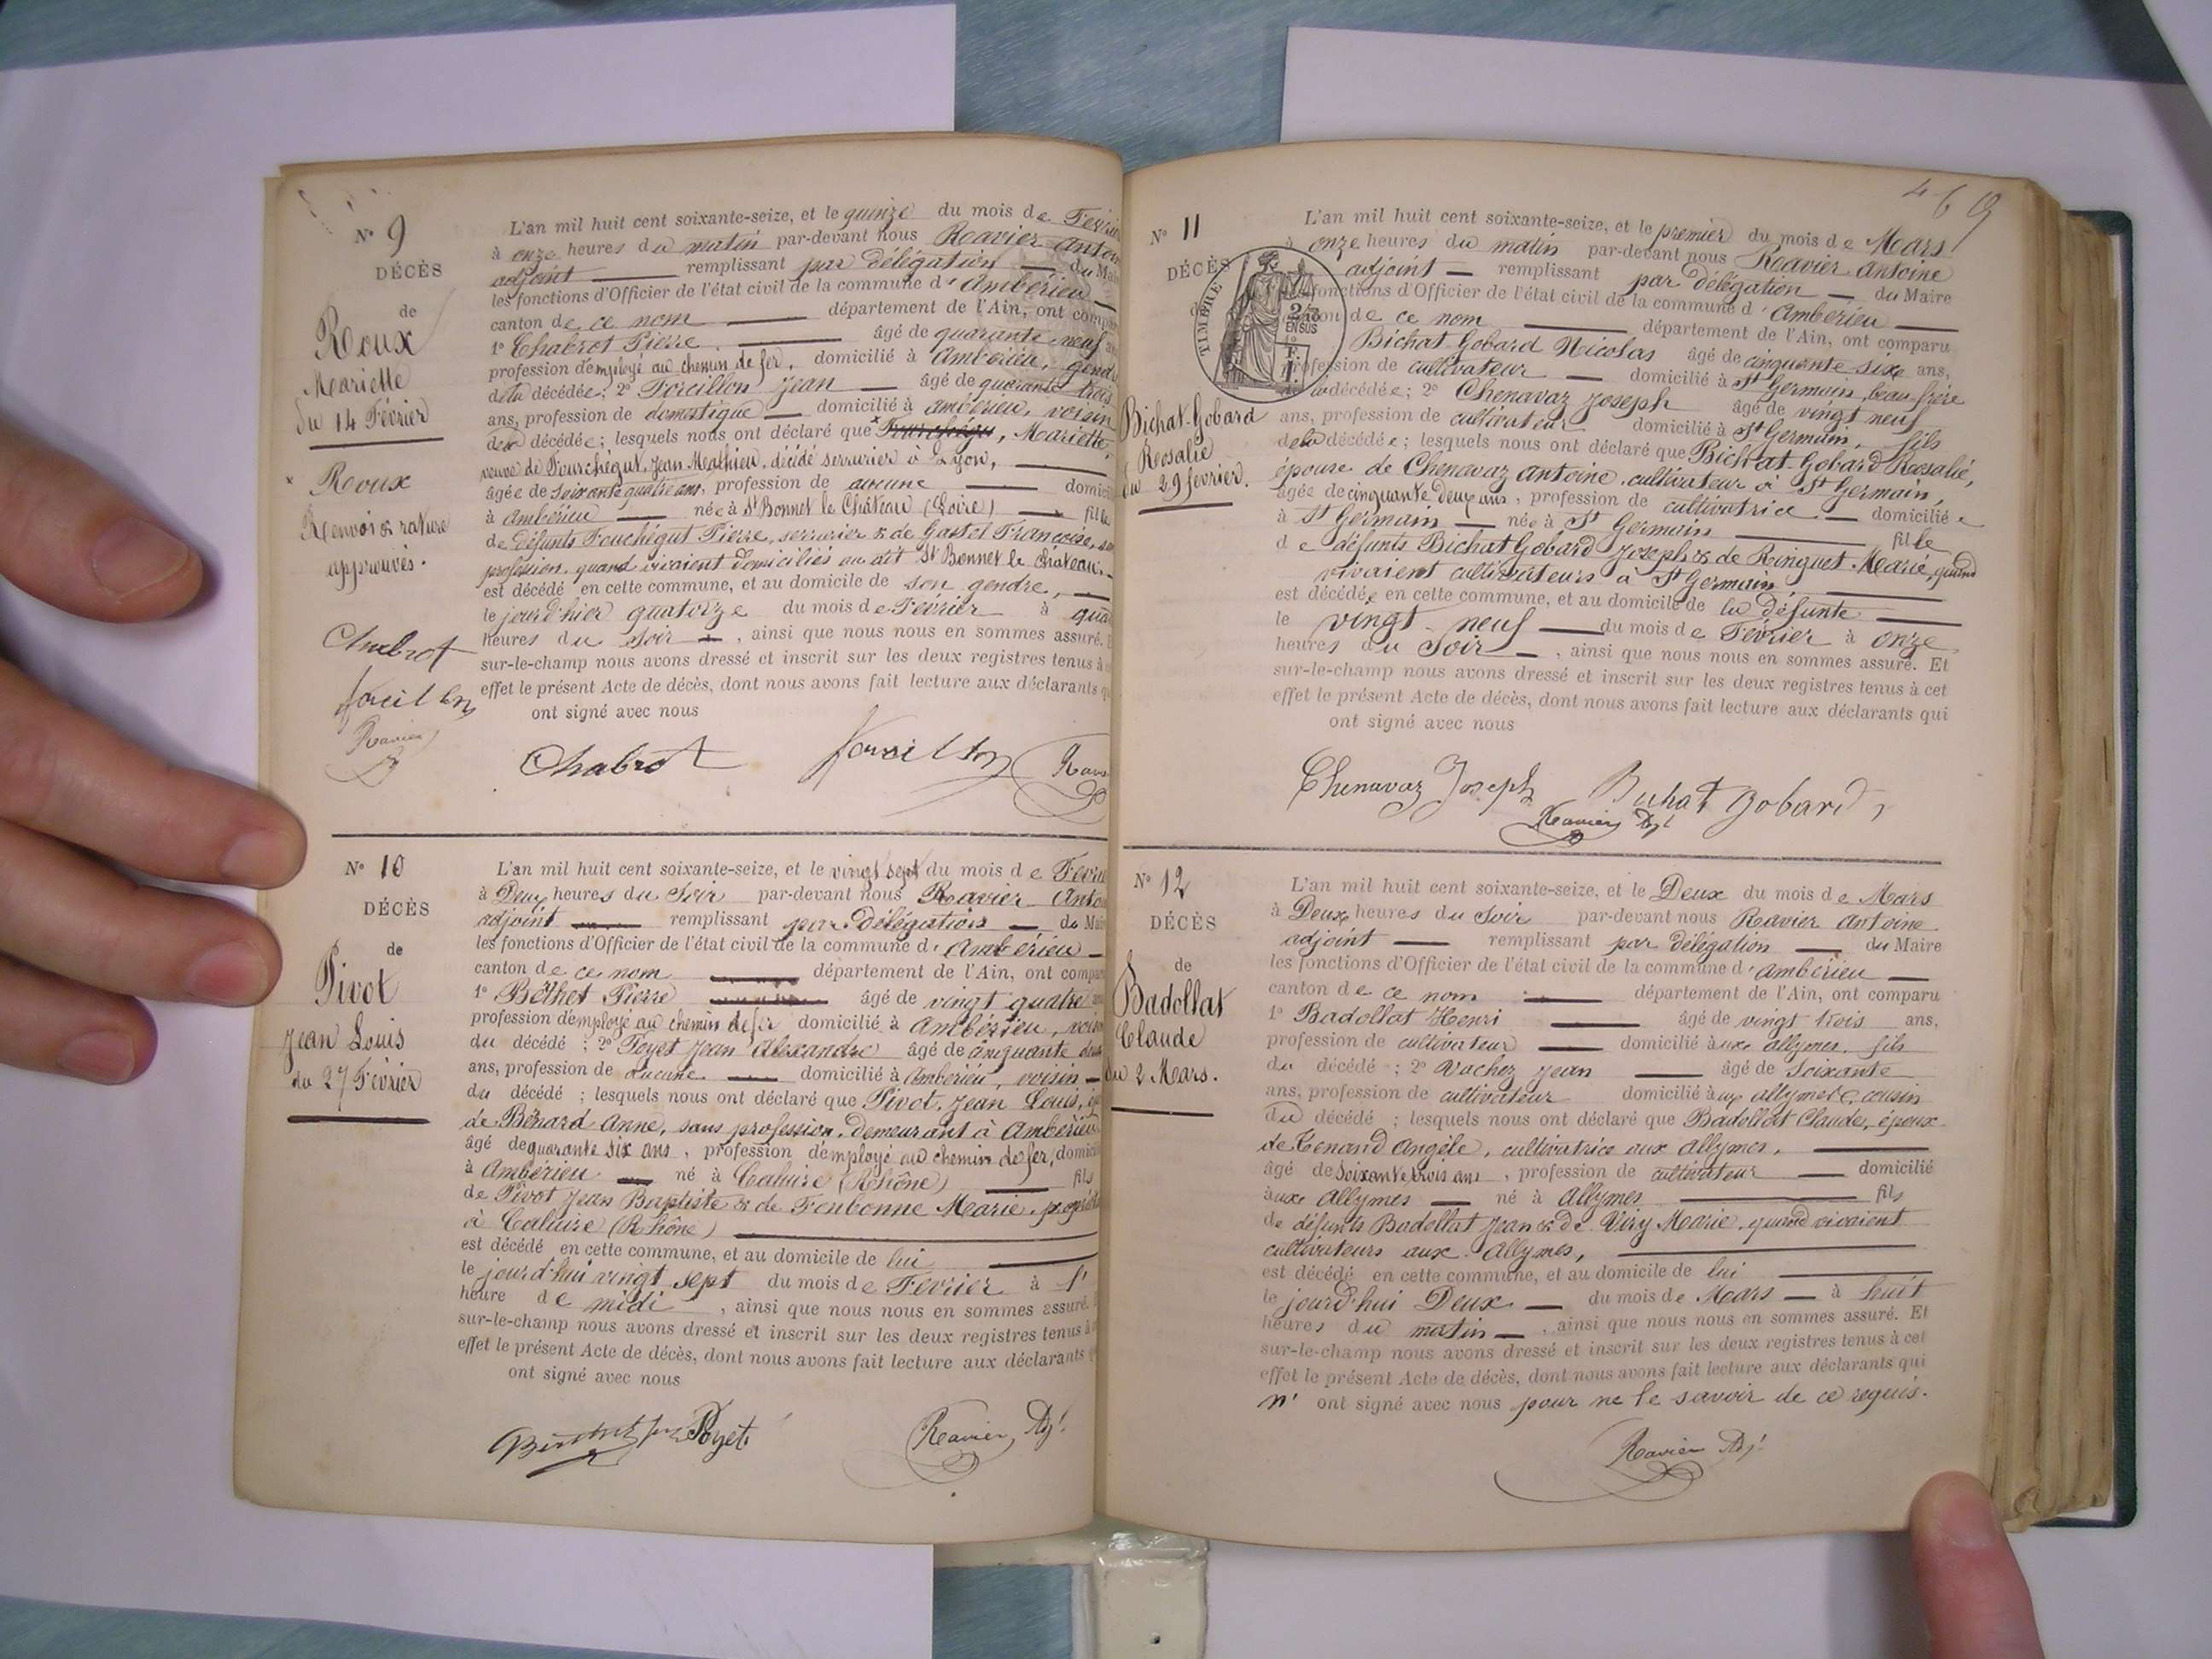 N° 9
DÉCÈS
de
Roux
Mariette
du 14 Février
× Roux
Renvoi & rature
approuvés.
Chabrot
forcillon
Ravier
L'an mil huit cent soixante-seize, et le quinze du mois de Févri
à onze heures du matin par-devant nous Ravier Antoin
adjoint remplissant par délégation du Mai
les fonctions d'Officier de l'état civil de la commune d'Ambérieu
canton de ce nom département de l'Ain, ont compar
1° Chabrot Pierre âgé de quarante neuf
profession d'employé au chemin de fer, domicilié à Ambérieu, gendre
de la décédée; 2° Forcillon Jean âgé de quarante trois
ans, profession de domestique domicilié à Ambérieu, voisin
de la décédée; lesquels nous ont déclaré que × , Mariette,
veuve de Fourchégut, Jean Mathieu, décédé serrurier à Lyon,
âgée de soixante quatre ans, profession de aucune domici
à Ambérieu née à St Bonnet le Château (Loire) fille
de défunts Fouchégut Pierre, serrurier & de Gastel Françoise, san
profession, quand vivaient domiciliés au dit St Bonnet le Château.
est décédé en cette commune, et au domicile de son gendre,
le jourd'hier quatorze du mois de Février à qua
heures du soir , ainsi que nous nous en sommes assuré. E
sur-le-champ nous avons dressé et inscrit sur les deux registres tenus à
effet le présent Acte de décès, dont nous avons fait lecture aux déclarants qu
ont signé avec nous
Chabrot forcillon Ravi
N° 10
DÉCÈS
de
Pivot
Jean Louis
du 27 Février
L'an mil huit cent soixante-seize, et le vingt sept du mois de Févrie
à Deux heures du Soir par-devant nous Ravier Antoi
adjoint remplissant par délégation du Mair
les fonctions d'Officier de l'état civil de la commune d'Ambérieu
canton de ce nom département de l'Ain, ont compar
1° Béthet Pierre âgé de vingt quatre
profession d'employé au chemin de fer domicilié à Ambérieu, voisin
du décédé ; 2° Poyet Jean Alexandre âgé de cinquante deux
ans, profession de aucune domicilié à Ambérieu, voisin
du décédé ; lesquels nous ont déclaré que Pivot, Jean Louis, ép
de Bénard Anne, sans profession, demeurant à Ambérieu
âgé de quarante six ans, profession d'employé au chemin de fer, domici
à Ambérieu né à Caluire (Rhône) fils
de Pivot Jean Baptiste & de Fonbonne Marie, propriét
à Caluire (Rhône)
est décédé en cette commune, et au domicile de lui
le jourd'hui vingt sept du mois de Février à 1'
heure de midi , ainsi que nous nous en sommes assuré. E
sur-le-champ nous avons dressé et inscrit sur les deux registres tenus à
effet le présent Acte de décès, dont nous avons fait lecture aux déclarants
ont signé avec nous
Poyet Ravier Adj!
469
N° 11
DÉCÈS
TIMBRE
2/10
EN SUS
Bichat-Gobard
Rosalie
du 29 février.
L'an mil huit cent soixante-seize, et le premier du mois de Mars
à onze heures du matin par-devant nous Ravier Antoine
adjoint remplissant par délégation du Maire
les fonctions d'Officier de l'état civil de la commune d'Ambérieu
canton de ce nom département de l'Ain, ont comparu
1° Bichat Gobard Nicolas âgé de cinquante six ans,
profession de cultivateur domicilié à St Germain, beau frère
de la décédée; 2° Chenavaz Joseph âgé de vingt neuf
ans, profession de cultivateur domicilié à St Germain, fils
de la décédée; lesquels nous ont déclaré que Bichat-Gobard Rosalie,
épouse de Chenavaz Antoine, cultivateur à St Germain,
âgée de cinquante deux ans, profession de cultivatrice domiciliée
à St Germain née à St Germain fille
de défunts Bichat Gobard Joseph & de Ringuet Marie, quand
vivaient cultivateurs à St Germain
est décédée en cette commune, et au domicile de la défunte
le vingt-neuf du mois de Février à onze
heures du Soir , ainsi que nous nous en sommes assuré. Et
sur-le-champ nous avons dressé et inscrit sur les deux registres tenus à cet
effet le présent Acte de décès, dont nous avons fait lecture aux déclarants qui
ont signé avec nous
Chenavaz Joseph Bichat Gobard
Ravier Adjt
N° 12
DÉCÈS
de
Badollat
Claude
du 2 Mars.
L'an mil huit cent soixante-seize, et le Deux du mois de Mars
à Deux heures du Soir par-devant nous Ravier Antoine
adjoint remplissant par délégation du Maire
les fonctions d'Officier de l'état civil de la commune d'Ambérieu
canton de ce nom département de l'Ain, ont comparu
1° Badollat Henri âgé de vingt trois ans,
profession de cultivateur domicilié aux Allymes, fils
du décédé ; 2° Vachez Jean âgé de Soixante
ans, profession de cultivateur domicilié aux Allymes, cousin
du décédé ; lesquels nous ont déclaré que Badollat Claude, époux
de Tenand Angèle, cultivatrice aux Allymes,
âgé de Soixante trois ans, profession de cultivateur domicilié
aux Allymes né à Allymes fils
de défunts Badollat Jean & de Viry Marie, quand vivaient
cultivateurs aux Allymes,
est décédé en cette commune, et au domicile de lui
le jourd'hui Deux du mois de Mars à huit
heures du matin , ainsi que nous nous en sommes assuré. Et
sur-le-champ nous avons dressé et inscrit sur les deux registres tenus à cet
effet le présent Acte de décès, dont nous avons fait lecture aux déclarants qui
n'ont signé avec nous pour ne le savoir de ce requis.
Ravier Adj!